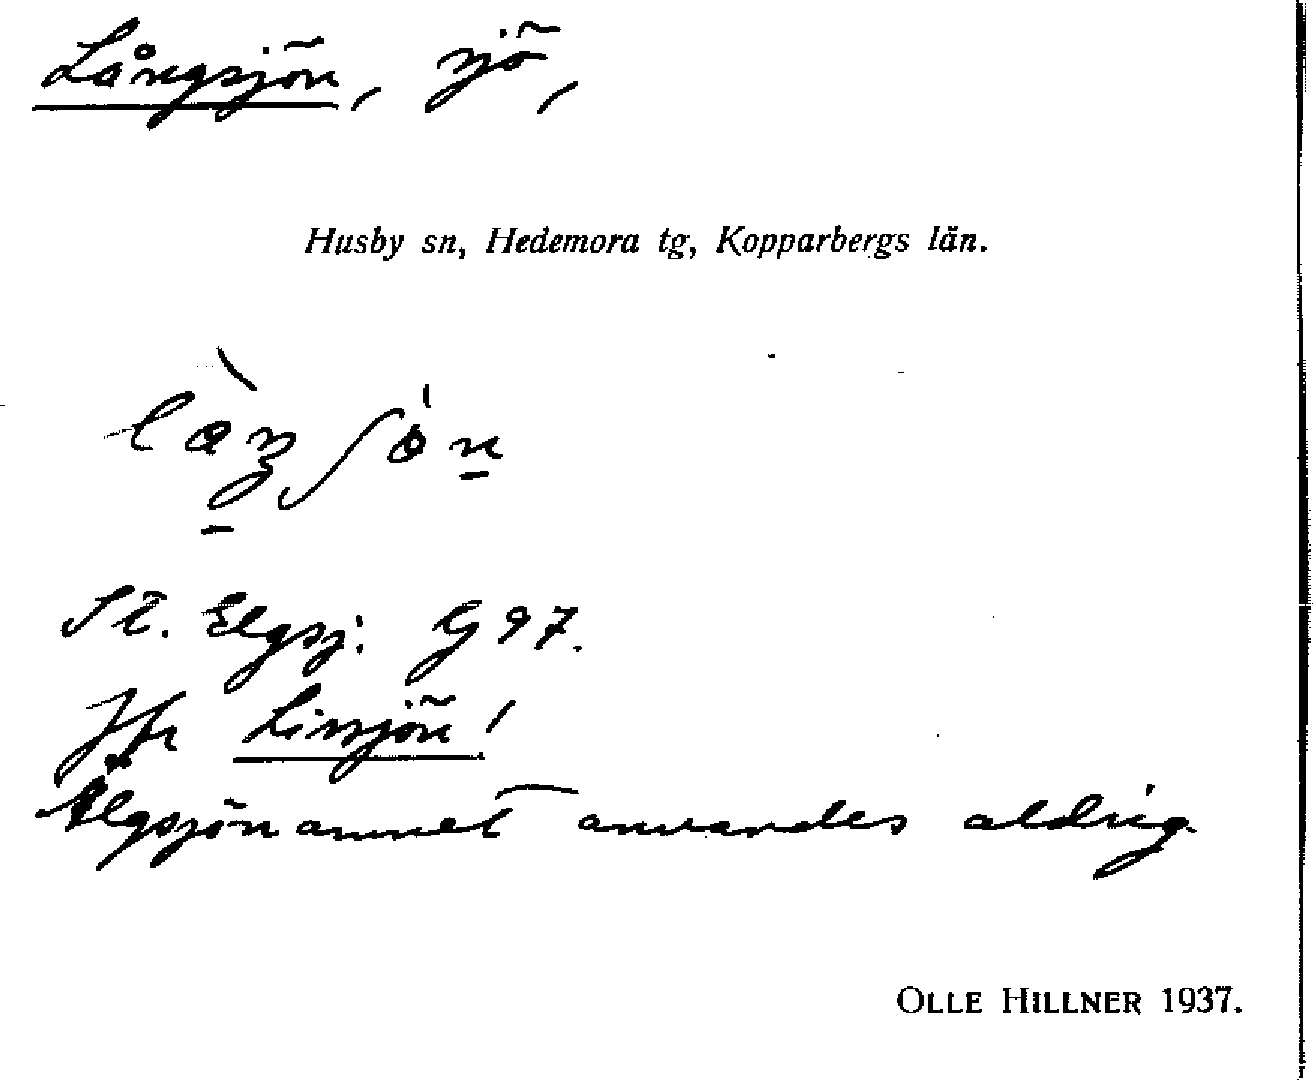 Långsjön, sjö,
Husby sn, Hedemora tg, Kopparbergs län.
St. Elgsj: G 97.
Jfr Lissjön!
Älgsjönamnet användes aldrig.
OLLE HILLNER 1937.